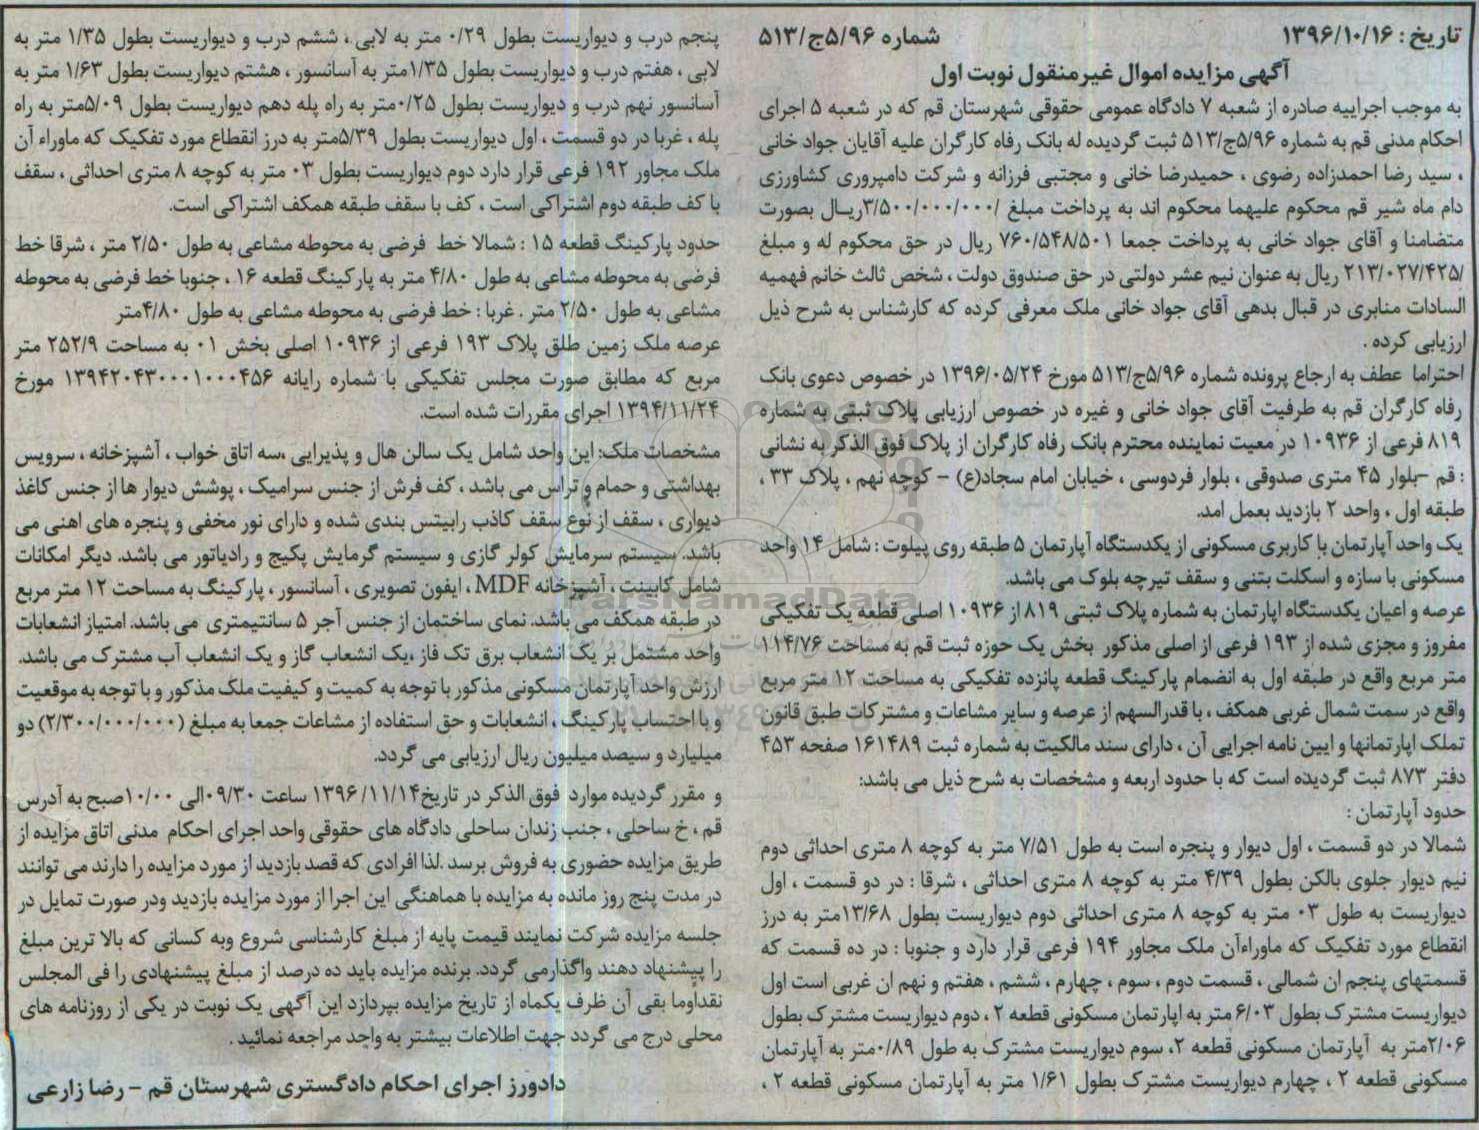 تاریخ : ۱۳۹۶/۱۰/۱۶
شماره ۵/۹۶ج/۵۱۳
آگهی مزایده اموال غیرمنقول نوبت اول
به موجب اجراییه صادره از شعبه ۷ دادگاه عمومی حقوقی شهرستان قم که در شعبه ۵ اجرای
احکام مدنی قم به شماره ۵/۹۶ج/۵۱۳ ثبت گردیده له بانک رفاه کارگران علیه آقایان جواد خانی
، سید رضا احمدزاده رضوی ، حمیدرضا خانی و مجتبی فرزانه و شرکت دامپروری کشاورزی
دام ماه شیر قم محکوم علیهما محکوم اند به پرداخت مبلغ /۳/۵۰۰/۰۰۰/۰۰۰ریال بصورت
متضامنا و آقای جواد خانی به پرداخت جمعا ۷۶۰/۵۴۸/۵۰۱ ریال در حق محکوم له و مبلغ
/۲۱۳/۰۲۷/۴۲۵ ریال به عنوان نیم عشر دولتی در حق صندوق دولت ، شخص ثالث خانم فهمیه
السادات منابری در قبال بدهی آقای جواد خانی ملک معرفی کرده که کارشناس به شرح ذیل
ارزیابی کرده .
احتراما عطف به ارجاع پرونده شماره ۵/۹۶ج/۵۱۳ مورخ ۱۳۹۶/۰۵/۲۴ در خصوص دعوی بانک
رفاه کارگران قم به طرفیت آقای جواد خانی و غیره در خصوص ارزیابی پلاک ثبتی به شماره
۸۱۹ فرعی از ۱۰۹۳۶ در معیت نماینده محترم بانک رفاه کارگران از پلاک فوق الذکر به نشانی
: قم -بلوار ۴۵ متری صدوقی ، بلوار فردوسی ، خیابان امام سجاد(ع) – کوچه نهم ، پلاک ۳۳ ،
طبقه اول ، واحد ۲ بازدید بعمل امد.
یک واحد آپارتمان با کاربری مسکونی از یکدستگاه آپارتمان ۵ طبقه روی پیلوت : شامل ۱۴ واحد
مسکونی با سازه و اسکلت بتنی و سقف تیرچه بلوک می باشد.
عرصه و اعیان یکدستگاه اپارتمان به شماره پلاک ثبتی ۸۱۹ از ۱۰۹۳۶ اصلی قطعه یک تفکیکی
مفروز و مجزی شده از ۱۹۳ فرعی از اصلی مذکور بخش یک حوزه ثبت قم به مساحت ۱۱۴/۷۶
متر مربع واقع در طبقه اول به انضمام پارکینگ قطعه پانزده تفکیکی به مساحت ۱۲ متر مربع
واقع در سمت شمال غربی همکف ، با قدرالسهم از عرصه و سایر مشاعات و مشترکات طبق قانون
تملک اپارتمانها و ایین نامه اجرایی آن ، دارای سند مالکیت به شماره ثبت ۱۶۱۴۸۹ صفحه ۴۵۳
دفتر ۸۷۳ ثبت گردیده است که با حدود اربعه و مشخصات به شرح ذیل می باشد:
حدود آپارتمان :
شمالا در دو قسمت ، اول دیوار و پنجره است به طول ۷/۵۱ متر به کوچه ۸ متری احداثی دوم
نیم دیوار جلوی بالکن بطول ۴/۳۹ متر به کوچه ۸ متری احداثی ، شرقا : در دو قسمت ، اول
دیواریست به طول ۰۳ متر به کوچه ۸ متری احداثی دوم دیواریست بطول ۱۳/۶۸متر به درز
انقطاع مورد تفکیک که ماوراءآن ملک مجاور ۱۹۴ فرعی قرار دارد و جنوبا : در ده قسمت که
قسمتهای پنجم ان شمالی ، قسمت دوم ، سوم ، چهارم ، ششم ، هفتم و نهم ان غربی است اول
دیواریست مشترک بطول ۶/۰۳ متر به اپارتمان مسکونی قطعه ۲ ، دوم دیواریست مشترک بطول
۲/۰۶متر به آپارتمان مسکونی قطعه ۲، سوم دیواریست مشترک به طول ۰/۸۹متر به آپارتمان
مسکونی قطعه ۲ ، چهارم دیواریست مشترک بطول ۱/۶۱ متر به آپارتمان مسکونی قطعه ۲ ،
پنجم درب و دیواریست بطول ۰/۲۹ متر به لابی ، ششم درب و دیواریست بطول ۱/۳۵ متر به
لابی ، هفتم درب و دیواریست بطول ۱/۳۵متر به آسانسور ، هشتم دیواریست بطول ۱/۶۳ متر به
آسانسور نهم درب و دیواریست بطول ۰/۲۵متر به راه پله دهم دیواریست بطول ۵/۰۹متر به راه
پله ، غربا در دو قسمت ، اول دیواریست بطول ۵/۳۹متر به درز انقطاع مورد تفکیک که ماوراء آن
ملک مجاور ۱۹۲ فرعی قرار دارد دوم دیواریست بطول ۰۳ متر به کوچه ۸ متری احداثی ، سقف
با کف طبقه دوم اشتراکی است ، کف با سقف طبقه همکف اشتراکی است.
حدود پارکینگ قطعه ۱۵ : شمالا خط فرضی به محوطه مشاعی به طول ۲/۵۰ متر ، شرقا خط
فرضی به محوطه مشاعی به طول ۴/۸۰ متر به پارکینگ قطعه ۱۶ ، جنوبا خط فرضی به محوطه
مشاعی به طول ۲/۵۰ متر . غربا : خط فرضی به محوطه مشاعی به طول ۴/۸۰متر
عرصه ملک زمین طلق پلاک ۱۹۳ فرعی از ۱۰۹۳۶ اصلی بخش ۰۱ به مساحت ۲۵۲/۹ متر
مربع که مطابق صورت مجلس تفکیکی با شماره رایانه ۱۳۹۴۲۰۴۳۰۰۰۱۰۰۰۴۵۶ مورخ
۱۳۹۴/۱۱/۲۴ اجرای مقررات شده است.
مشخصات ملک: این واحد شامل یک سالن هال و پذیرایی ،سه اتاق خواب ، آشپزخانه ، سرویس
بهداشتی و حمام و تراس می باشد ، کف فرش از جنس سرامیک ، پوشش دیوار ها از جنس کاغذ
دیواری ، سقف از نوع سقف کاذب رابیتس بندی شده و دارای نور مخفی و پنجره های اهنی می
باشد. سیستم سرمایش کولر گازی و سیستم گرمایش پکیج و رادیاتور می باشد. دیگر امکانات
شامل کابینت ، آشپزخانه MDF ، ایفون تصویری ، آسانسور ، پارکینگ به مساحت ۱۲ متر مربع
در طبقه همکف می باشد. نمای ساختمان از جنس آجر ۵ سانتیمتری می باشد. امتیاز انشعابات
واحد مشتمل بر یک انشعاب برق تک فاز ،یک انشعاب گاز و یک انشعاب آب مشترک می باشد.
ارزش واحد آپارتمان مسکونی مذکور با توجه به کمیت و کیفیت ملک مذکور و با توجه به موقعیت
و با احتساب پارکینگ ، انشعابات و حق استفاده از مشاعات جمعا به مبلغ (۲/۳۰۰/۰۰۰/۰۰۰) دو
میلیارد و سیصد میلیون ریال ارزیابی می گردد.
و مقرر گردیده موارد فوق الذکر در تاریخ۱۳۹۶/۱۱/۱۴ ساعت ۰۹/۳۰الی ۱۰/۰۰صبح به آدرس
قم ، خ ساحلی ، جنب زندان ساحلی دادگاه های حقوقی واحد اجرای احکام مدنی اتاق مزایده از
طریق مزایده حضوری به فروش برسد .لذا افرادی که قصد بازدید از مورد مزایده را دارند می توانند
در مدت پنج روز مانده به مزایده با هماهنگی این اجرا از مورد مزایده بازدید ودر صورت تمایل در
جلسه مزایده شرکت نمایند قیمت پایه از مبلغ کارشناسی شروع وبه کسانی که بالا ترین مبلغ
را پیشنهاد دهند واگذارمی گردد. برنده مزایده باید ده درصد از مبلغ پیشنهادی را فی المجلس
نقداوما بقی آن ظرف یکماه از تاریخ مزایده بپردازد این آگهی یک نوبت در یکی از روزنامه های
محلی درج می گردد جهت اطلاعات بیشتر به واحد مراجعه نمائید .
دادورز اجرای احکام دادگستری شهرستان قم – رضا زارعی
ParsNamadData